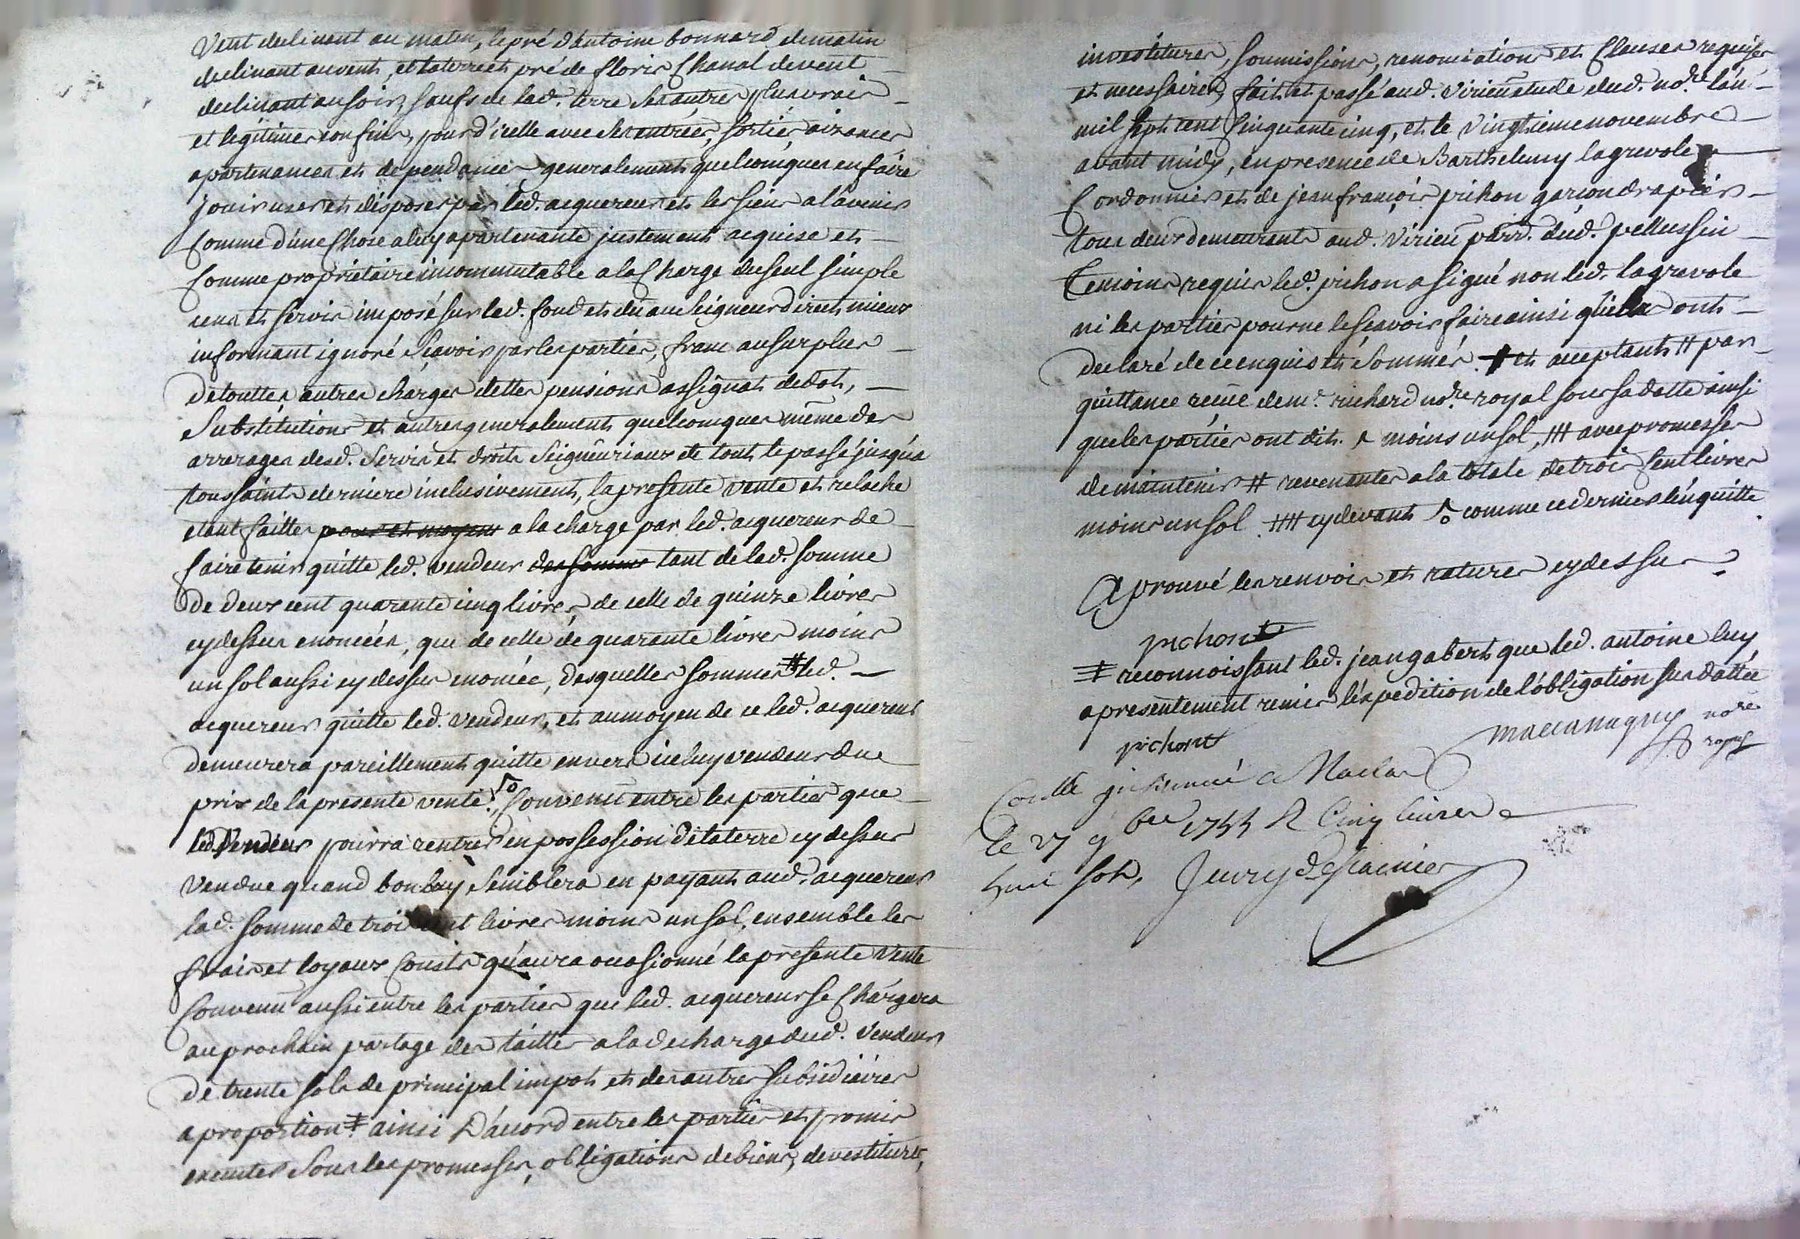 vent declinant au matin, le pré d'antoine bonnard de matin
declinant au vent, et la terre et pré de floris Chanal de vent
declinant au soir, saufs de lad. terre ses autres plus vrais
et legitimes confins, pour d'icelle avec ses entrées, sorties aizances
apartenances et dependances generalement quelconques en faire
jouir user et disposer par led. acquereur et les siens a l'avenir
Comme d'une Chose a luy apartenante justement acquise et
Comme propriétaire incommutable a la Charge du seul simple
cens et servis imposé sur led. fond et dû au seigneur direct mieux
informant ignoré sçavoir par les parties, franc au surplus
de touttes autres charges dettes pensions assignats de dot,
substitutions et autres generalement quelconques même des
arrerages desd. servis et droits seigneuriaux de tout le passé jusqu'a
toussaints derniere inclusivement, la presente vente et relache
etant faittes pour et moyen a la charge par led. acquereur de
faire tenir quitte led. vendeur des sommes tant de lad. somme
de deux cent quarante cinq livres de celle de quinze livres
cy dessus enoncées, que de celle de quarante livres moins
un sol aussi cy dessus enoncée, desquelles sommes # led.
acquereur quitte led. vendeur, et au moyen de ce led. acquereur
demeurera pareillement quitte envers icelluy vendeur du
prix de la presente vente. Convenu entre les parties que
led. vendeur pourra rentrer en possession de la terre cy dessus
vendue quand bon luy semblera en payant aud. acquereur
lad. somme de trois cent livres moins un sol, ensemble les
frais et loyaux Cousts qu'aura occasionné la presente vente
Convenu aussi entre les parties que led. acquereur se Chargera
au prochain partage des tailles a la decharge dud. vendeur
de trente sols de principal impot et des autres subsidiaires
a proportion ainsi D'acord entre les parties et promis
executer sous les promesses, obligations de biens, devestiture,
investitures, soumissions, renonciations et Clauses requises
et necessaires, fait et passé aud. virieu etude dud. no.re l'an
mil sept cent cinquante cinq, et le vingtieme novembre
avant midy, en presence de Barthelemy lagrevole
Cordonnier et de jean françois pichon garcon drapier
tous deux demeurants aud. virieu parr. dud. pellussin
temoins requis led. pichon a signé non led. lagrevole
ni les parties pour ne le sçavoir faire ainsi qu'ils ont
declaré de ce enquis et sommés. et acceptants # par
quittance reçüe de m.e richard no.re royal sous sa datte ainsi
que les parties ont dit. moins un sol, ### avec promesse
de maintenir # revenantes a la totale de trois cent livres
moins un sol #### cy devant comme ce dernier l'en quitte
Aprouvé les renvois et ratures cy dessus
pichon
# reconnoissant led. jean gabert que led. antoine luy
a presentement remis l'expedition de l'obligation sus dattée
pichon
no.re
royal
Con.llé a Maclas
le 27 9bre 1755 R Cinq livres
sols.